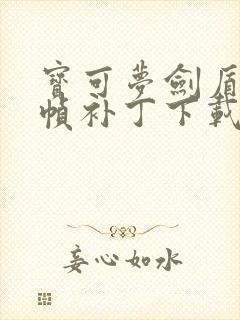 寶可夢劍盾
幀补丁下載
妄心如水